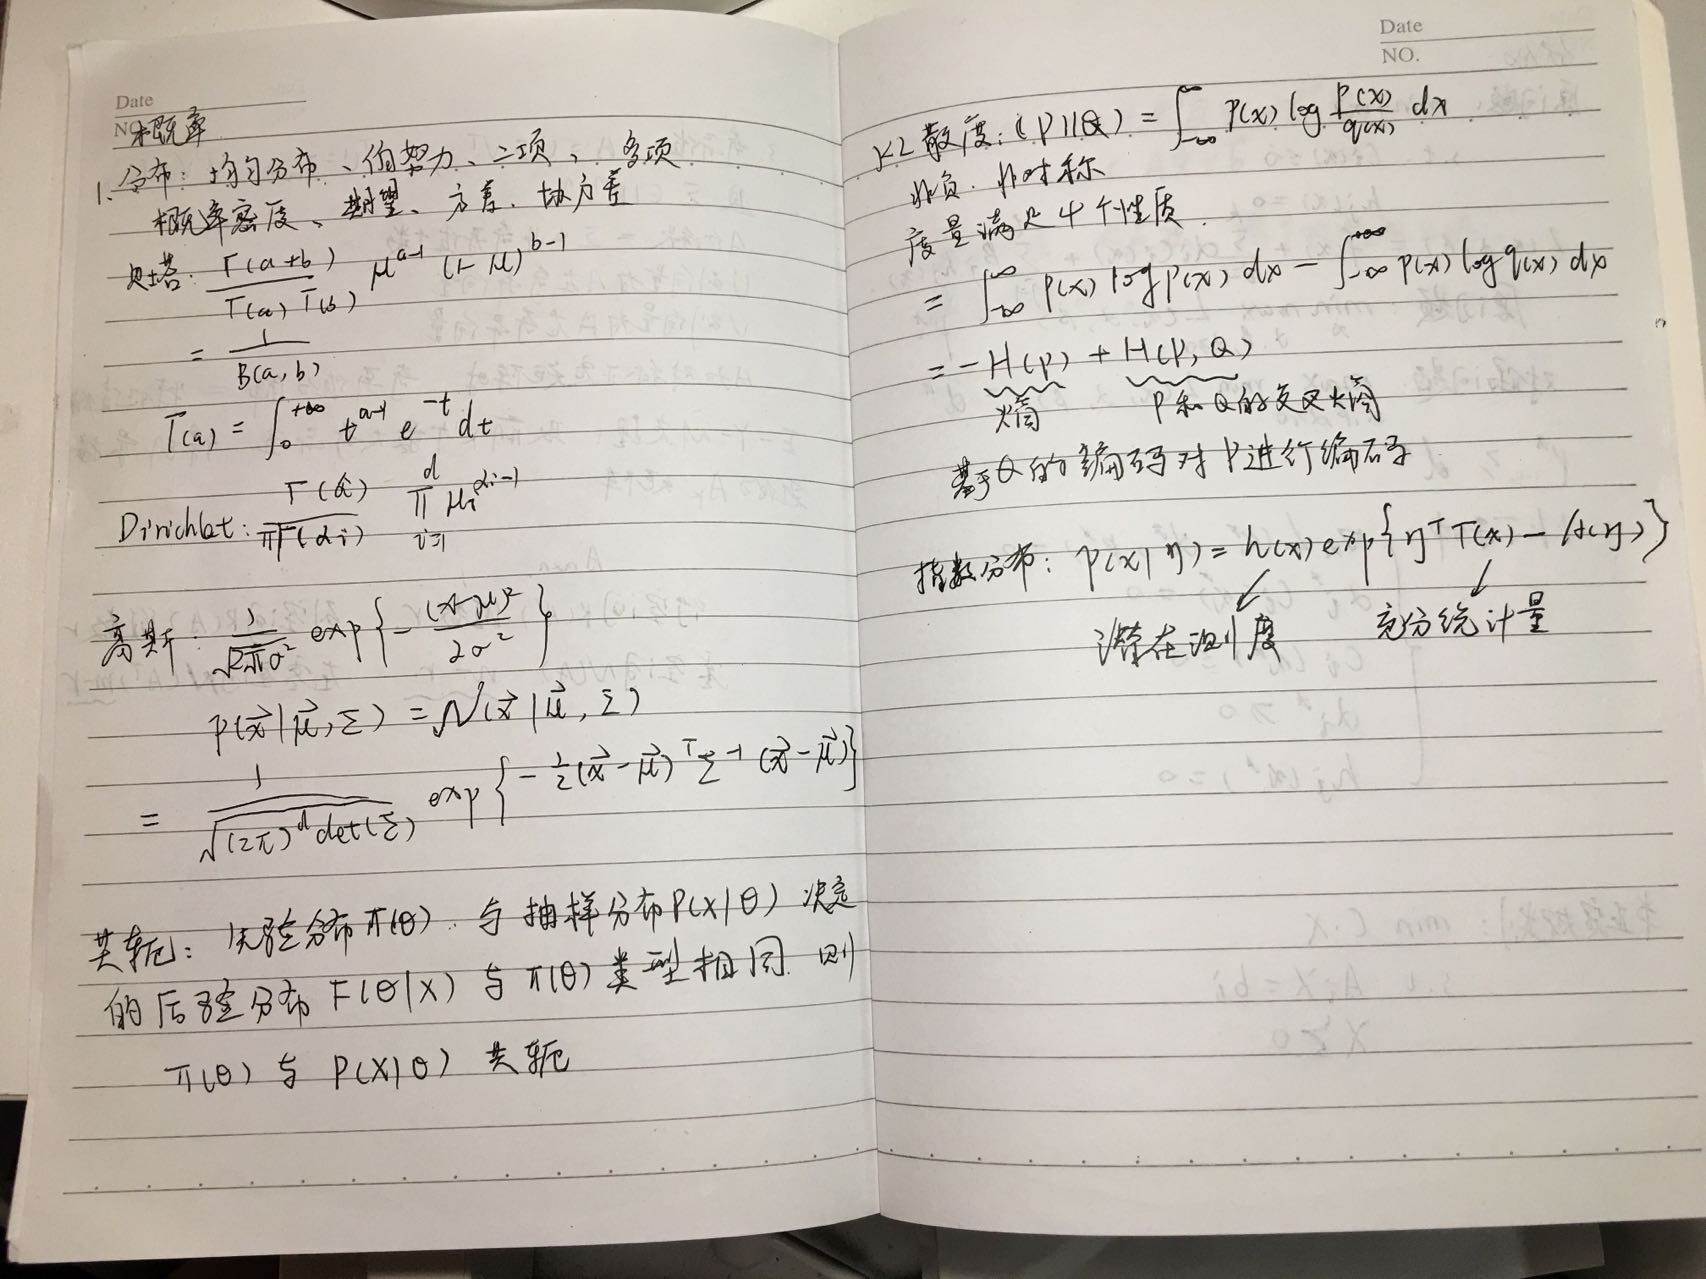 Date
NO.
概率
1. 分布：均匀分布、伯努力、二项、多项.
概率密度、期望、方差、协方差
贝塔：Γ(a+b) / Γ(a)Γ(b) μ^{a-1} (1-μ)^{b-1}
= 1 / B(a,b)
Γ(a) = ∫_0^{+∞} t^{a-1} e^{-t} dt
Dirichlet: Γ(α) / πΓ(αi) π_{i=1}^{d} μi^{αi-1}
高斯：1/√(2πσ²) exp{ -(x-μ)² / 2σ² }
p(x⃗|μ⃗,Σ) = N(x⃗|μ⃗,Σ)
= 1/√((2π)^d det(Σ)) exp{ -1/2 (x⃗-μ⃗)^T Σ^{-1} (x⃗-μ⃗) }
共轭：先验分布π(θ) 与抽样分布P(X|θ) 决定
的后验分布 F(θ|X) 与 π(θ) 类型相同 则
π(θ) 与 P(X|θ) 共轭
Date
NO.
KL散度：(P||Q) = ∫_{-∞}^{∞} P(x) log P(x)/q(x) dx.
非负. 非对称
度量满足4个性质.
= ∫_{-∞}^{∞} P(x) log P(x) dx - ∫_{-∞}^{+∞} P(x) log q(x) dx
= -H(P) + H(P,Q)
熵 P和Q的交叉熵
基于Q的编码对P进行编码
指数分布：p(x|η) = h(x) exp{ η^T T(x) - A(η) }
潜在测度 充分统计量